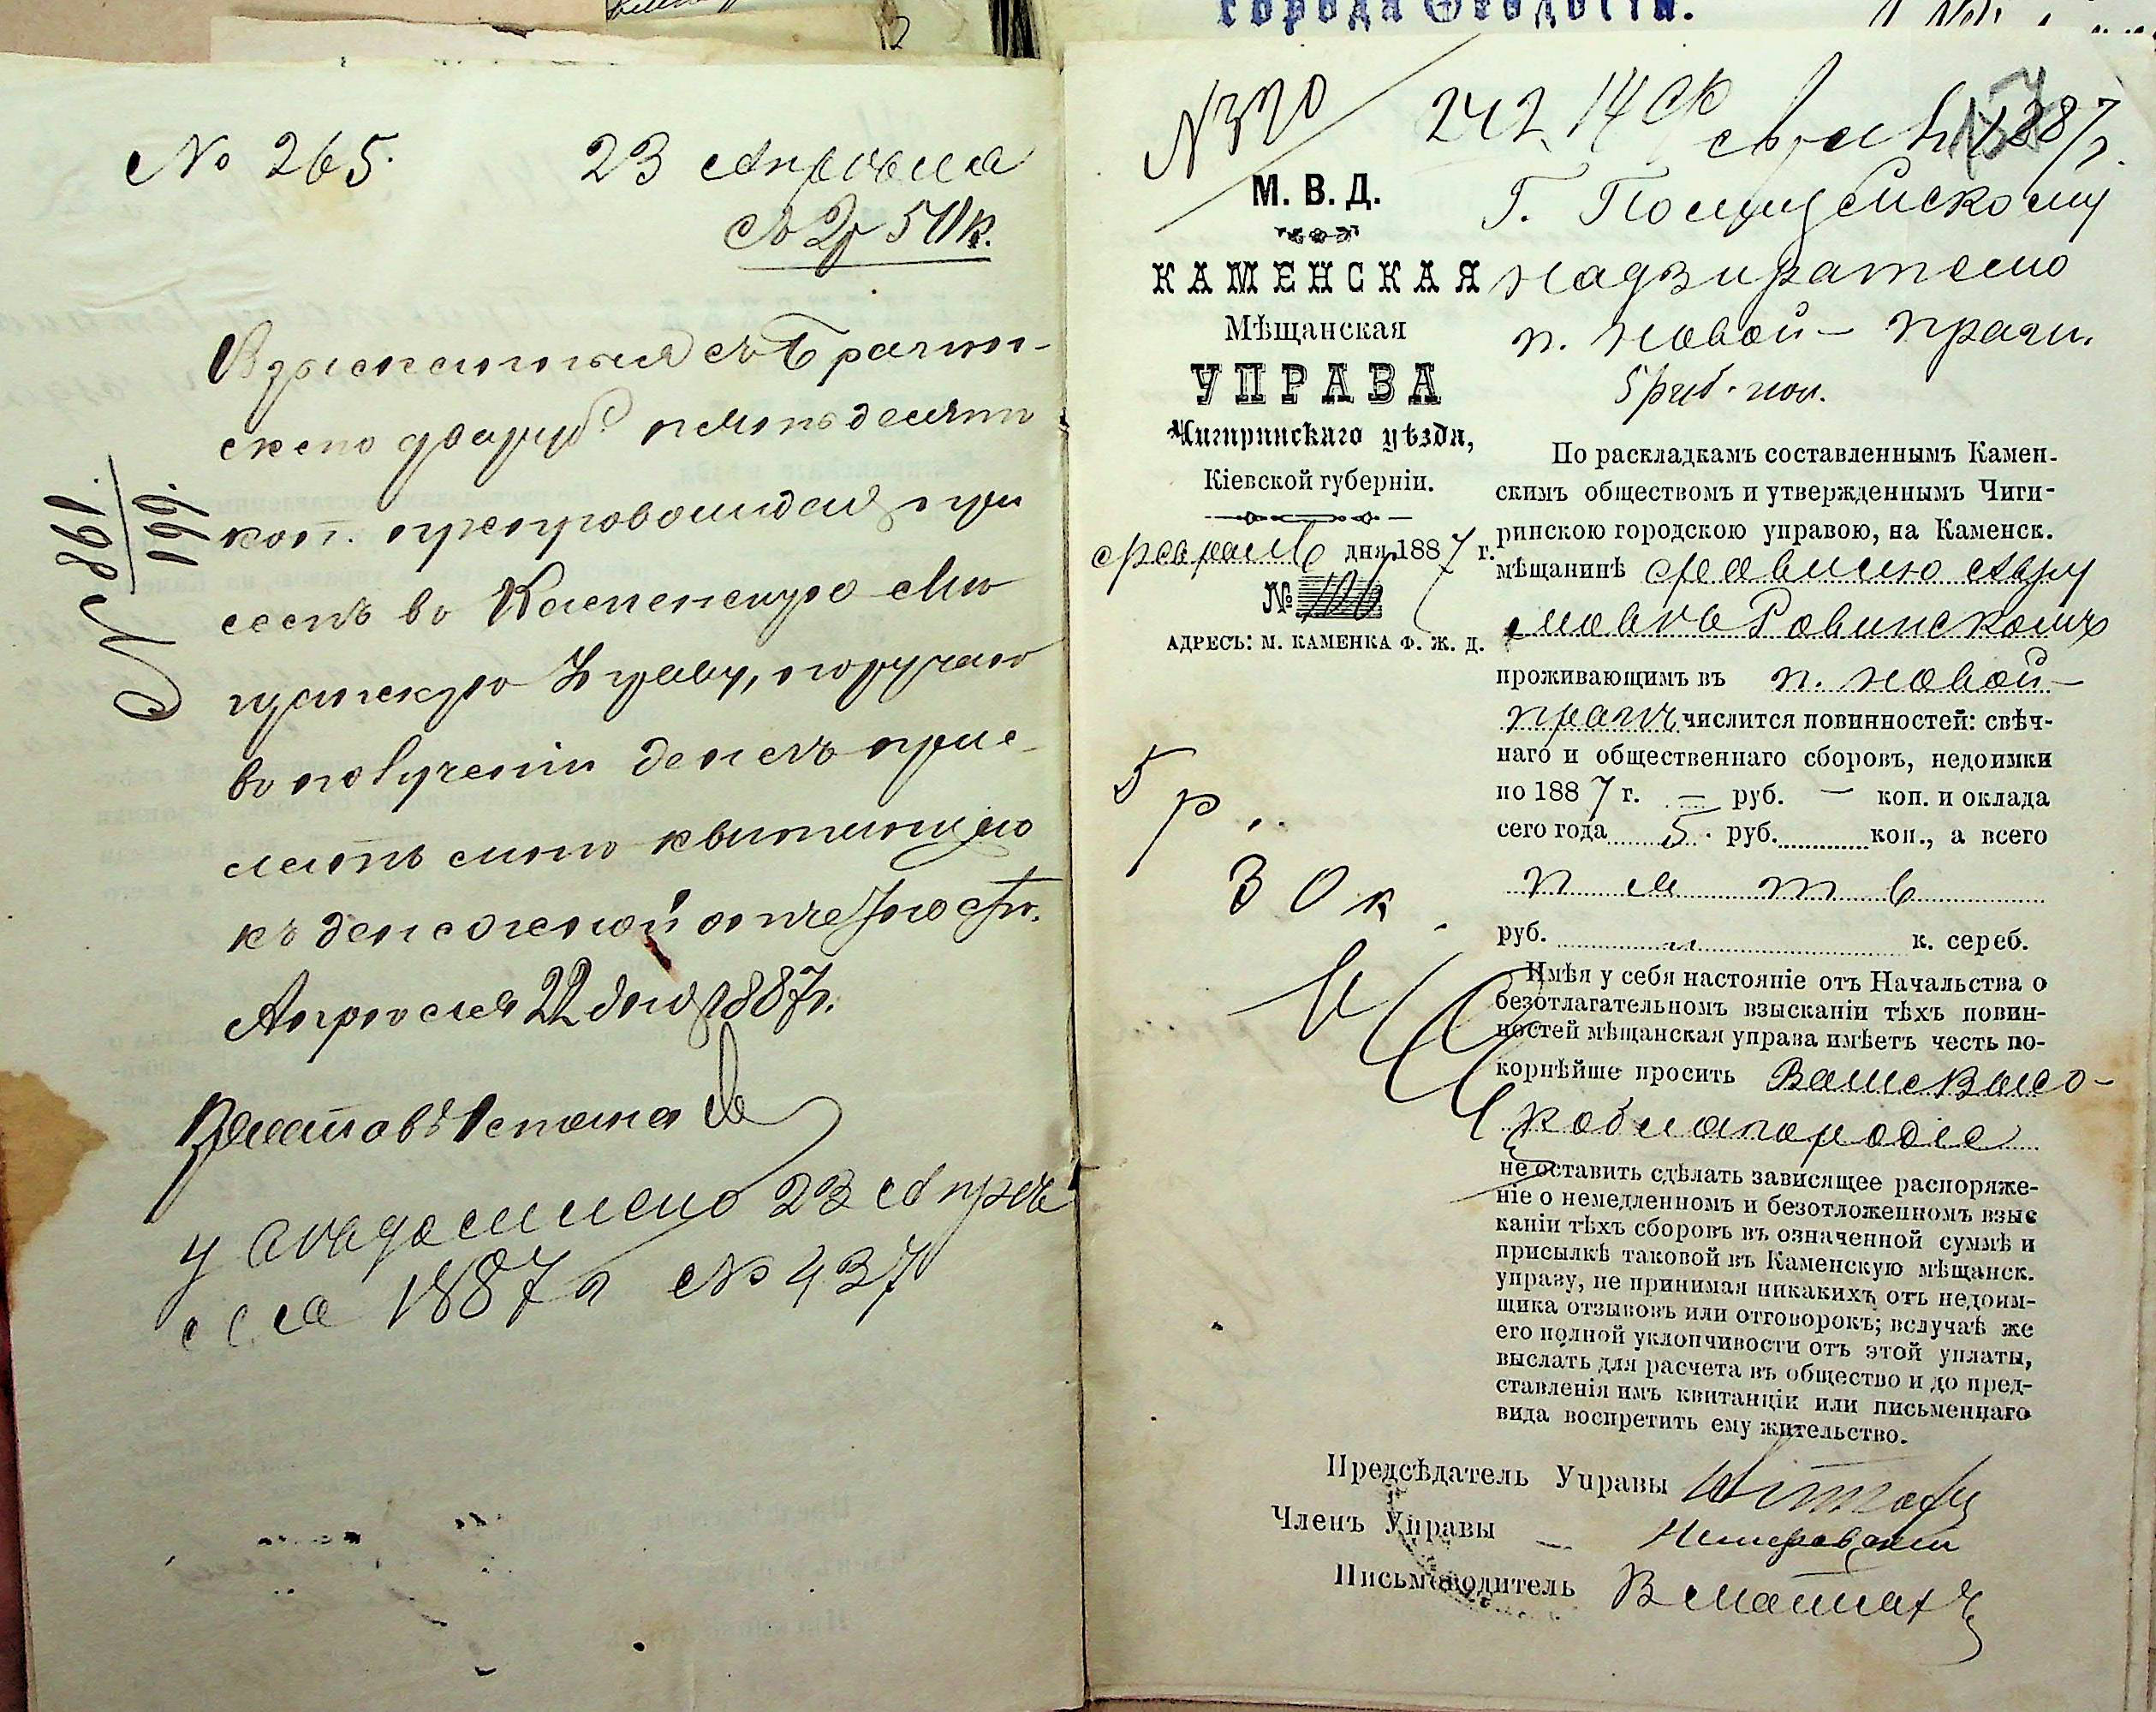 № 265.
23 Апреля
2р 50 к.
Взысканныя съ Брачин-
скаго два руб. пятьдесятъ
коп. препровождая при
семъ въ Каменскую Мѣ
щанскую Управу, поручаю
въ полученіи денегъ прис-
лать мнѣ квитанцію
къ денежной отчетности.
Апрѣля 22 дня 1887 г.
№ 1981.
1991.
23 Апрѣ
ля 1887 г. № 437
города Ѳеодосіи.
№ 320
242
1887 г.
М. В. Д.
КАМЕНСКАЯ
Мѣщанская
УПРАВА
Чигиринскаго уѣзда,
Кіевской губерніи.
февраля дня 1887 г.
№
АДРЕСЪ: М. КАМЕНКА Ф. Ж. Д.
Г. Полицейскому
надзирателю
п. Новой-Праги.
5 руб.
По раскладкамъ составленнымъ Камен-
скимъ обществомъ и утвержденнымъ Чиги-
ринскою городскою управою, на Каменск.
мѣщанинѣ
Ровинскомъ
проживающимъ въ п. Новой-
Прагѣ числится повинностей: свѣч-
наго и общественнаго сборовъ, недоимки
по 1887 г. — руб. — коп. и оклада
сего года 5 руб. коп., а всего
пять
руб. „ к. сереб.
Имѣя у себя настояніе отъ Начальства о
безотлагательномъ взысканіи тѣхъ повин-
ностей мѣщанская управа имѣетъ честь по-
корнѣйше просить Ваше Высо-
коблагородіе
не оставить сдѣлать зависящее распоряже-
ніе о немедленномъ и безотложенномъ взыс
каніи тѣхъ сборовъ въ означенной суммѣ и
присылкѣ таковой въ Каменскую мѣщанск.
управу, не принимая никакихъ отъ недоим-
щика отзывовъ или отговорокъ; вслучаѣ же
его полной уклончивости отъ этой уплаты,
выслать для расчета въ общество и до пред-
ставленія имъ квитанціи или письменнаго
вида воспретить ему жительство.
5 р.
30 к.
Предсѣдатель Управы
Членъ Управы
Письмоводитель